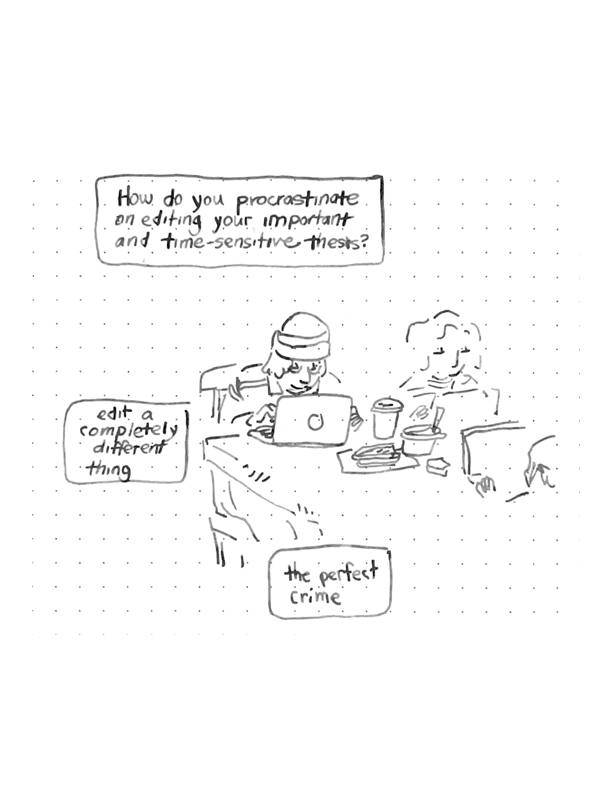 How do you procrastinate
on editing your important
and time-sensitive thesis?
edit a
completely
different
thing
the perfect
crime